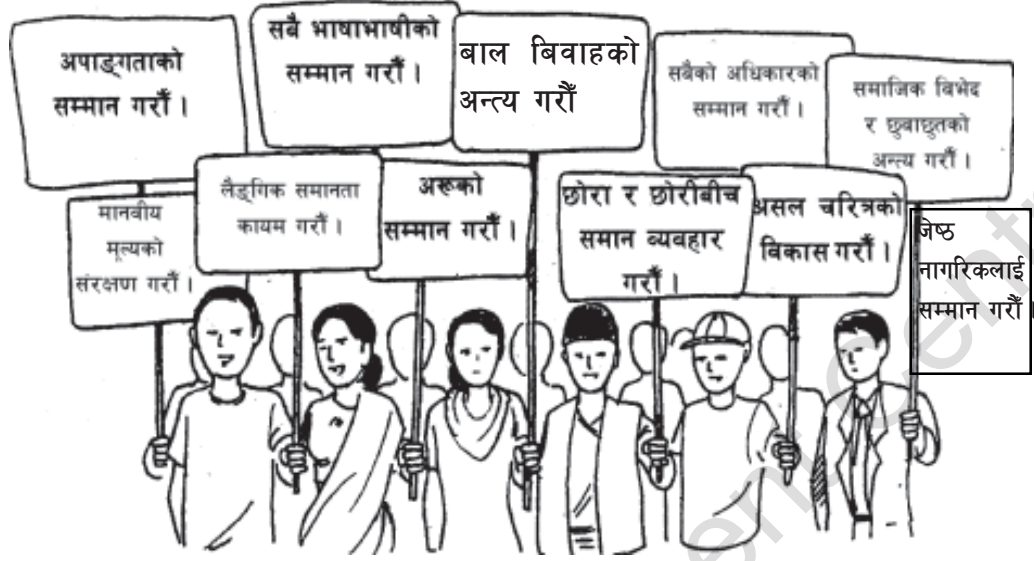 अपाङ्गताको
सम्मान गरौँ ।
सबै भाषाभाषीको
सम्मान गरौँ ।
बाल बिवाहको
अन्त्य गरौँ
सबैको अधिकारको
सम्मान गरौँ ।
समाजिक विभेद
र छुवाछुतको
अन्त्य गरौँ ।
मानवीय
मूल्यको
संरक्षण गरौँ ।
लैङ्गिक समानता
कायम गरौँ ।
अरूको
सम्मान गरौँ ।
छोरा र छोरीबीच
समान व्यवहार
गरौँ ।
असल चरित्रको
विकास गरौँ ।
जेष्ठ
नागरिकलाई
सम्मान गरौँ ।